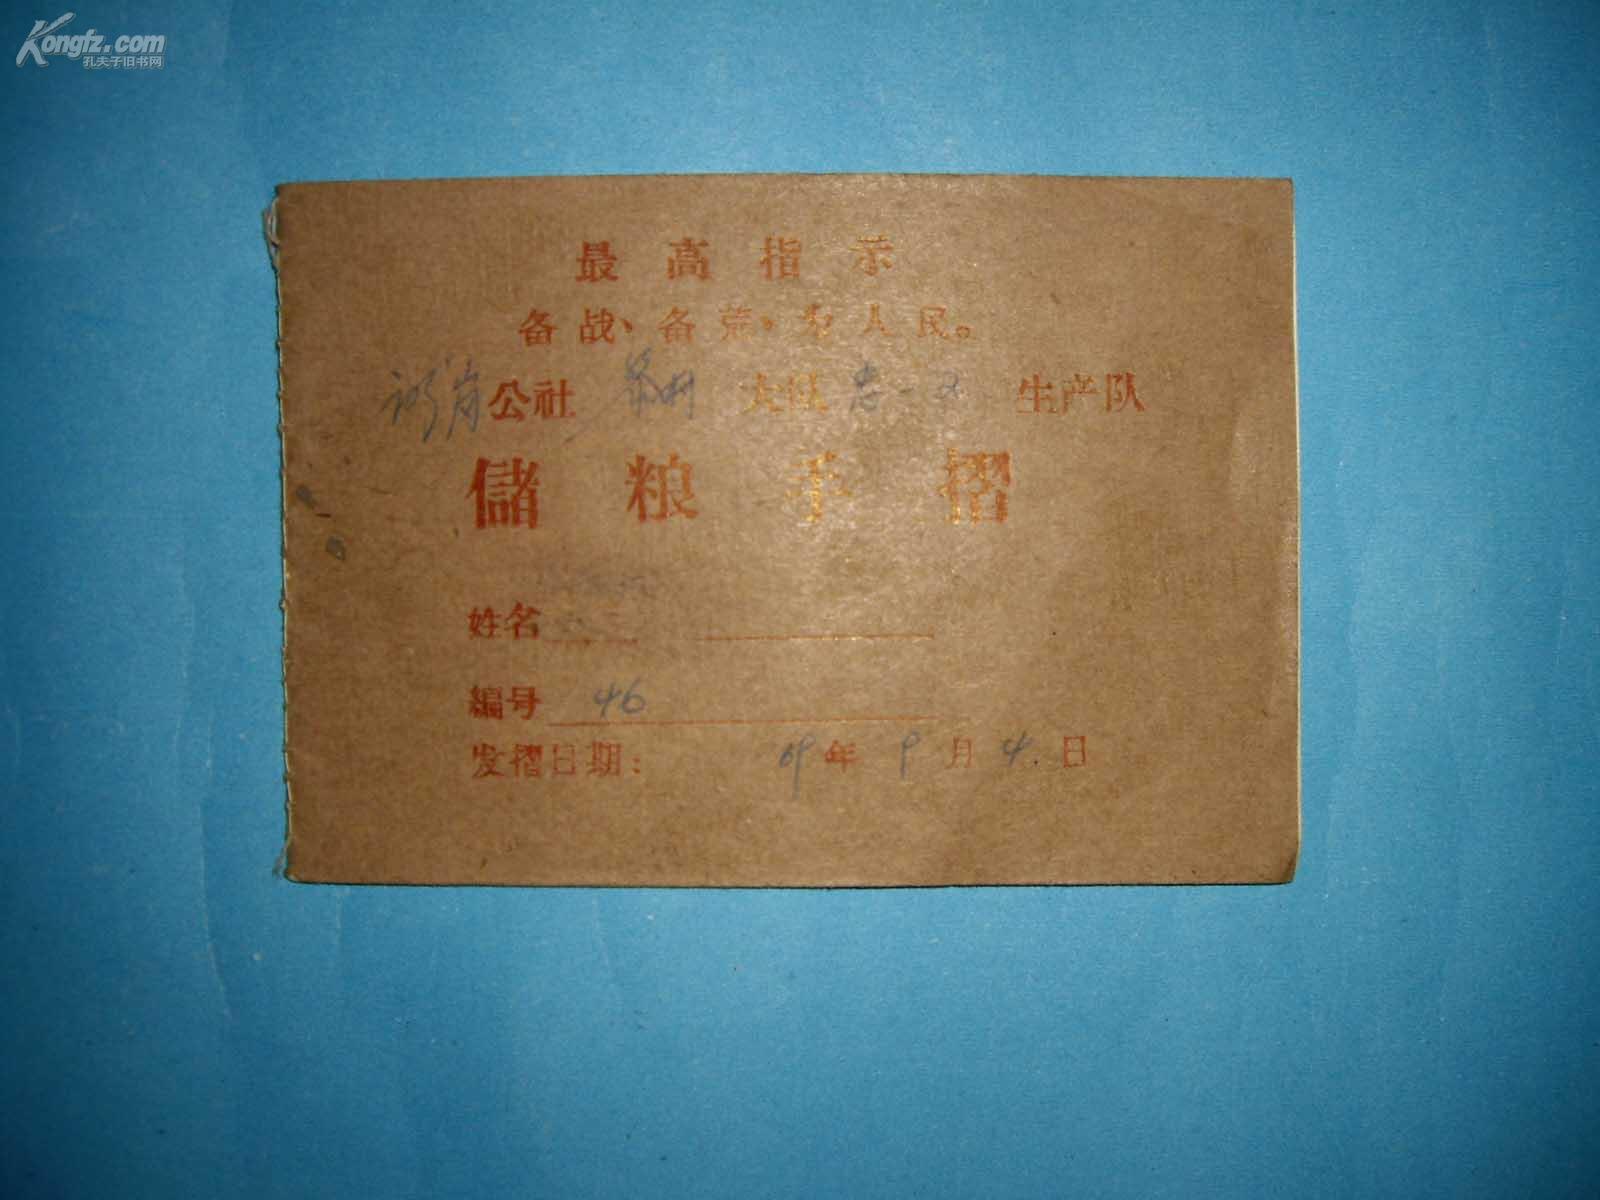 Kongfz.com
孔夫子旧书网
最高指示
备战、备荒、为人民。
公社 大队 生产队
儲粮手摺
姓名
編号 46
发摺日期: 69年9月4日